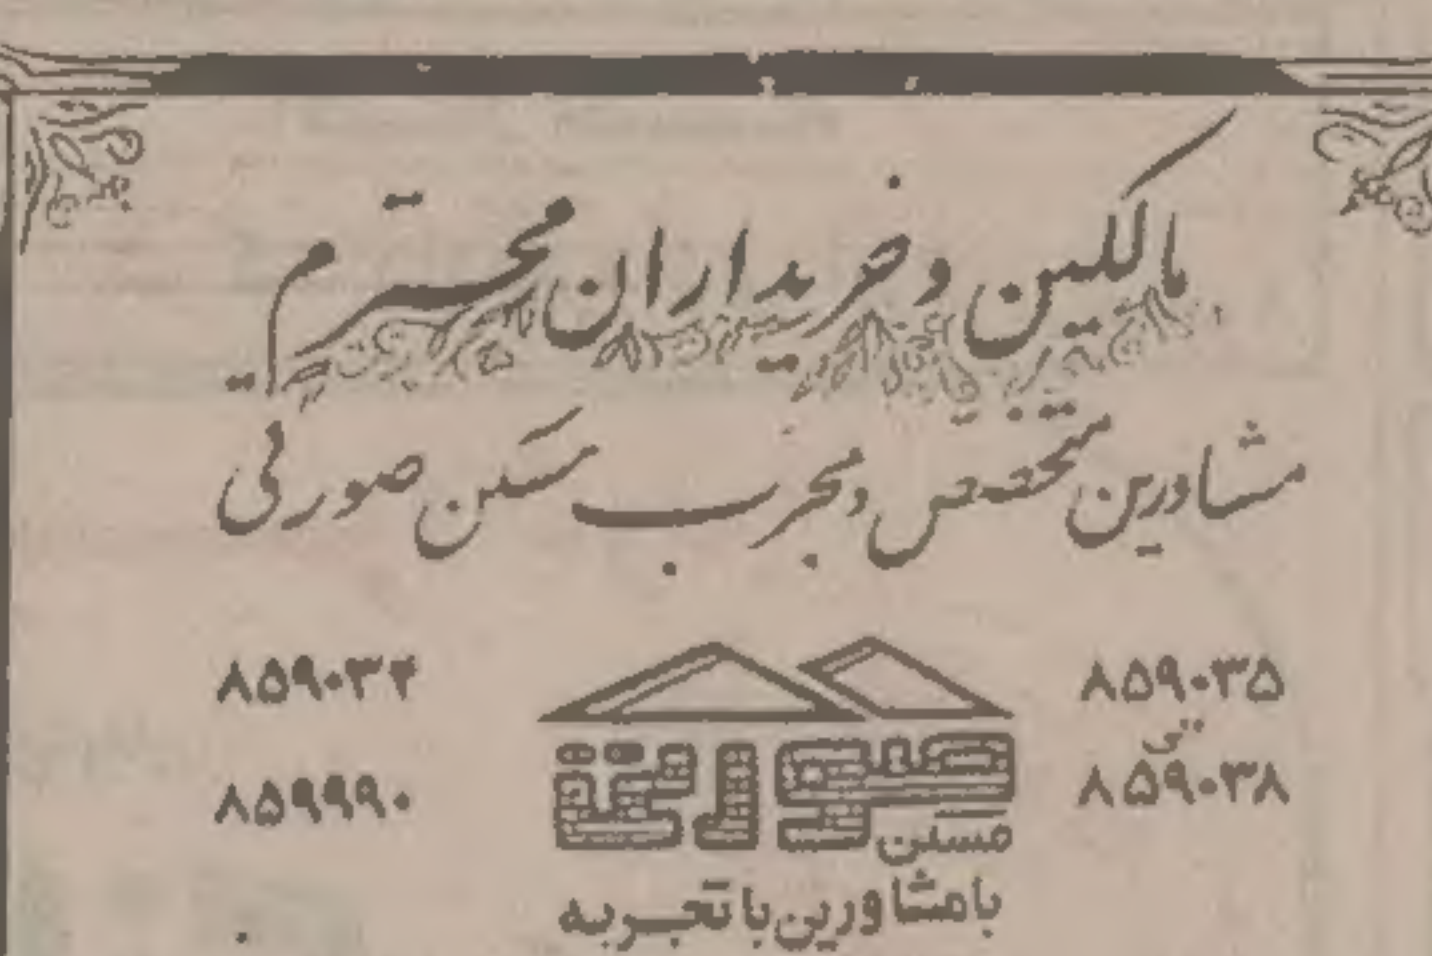 مالکین و خریداران محترم
مشاورین متخصص و مجرب مسکن صورتی
۸۵۹۰۳۵
الی
۸۵۹۰۳۸
صورتی
مسکن
با مشاورین با تجربه
۸۵۹۰۳۴
۸۵۹۹۹۰